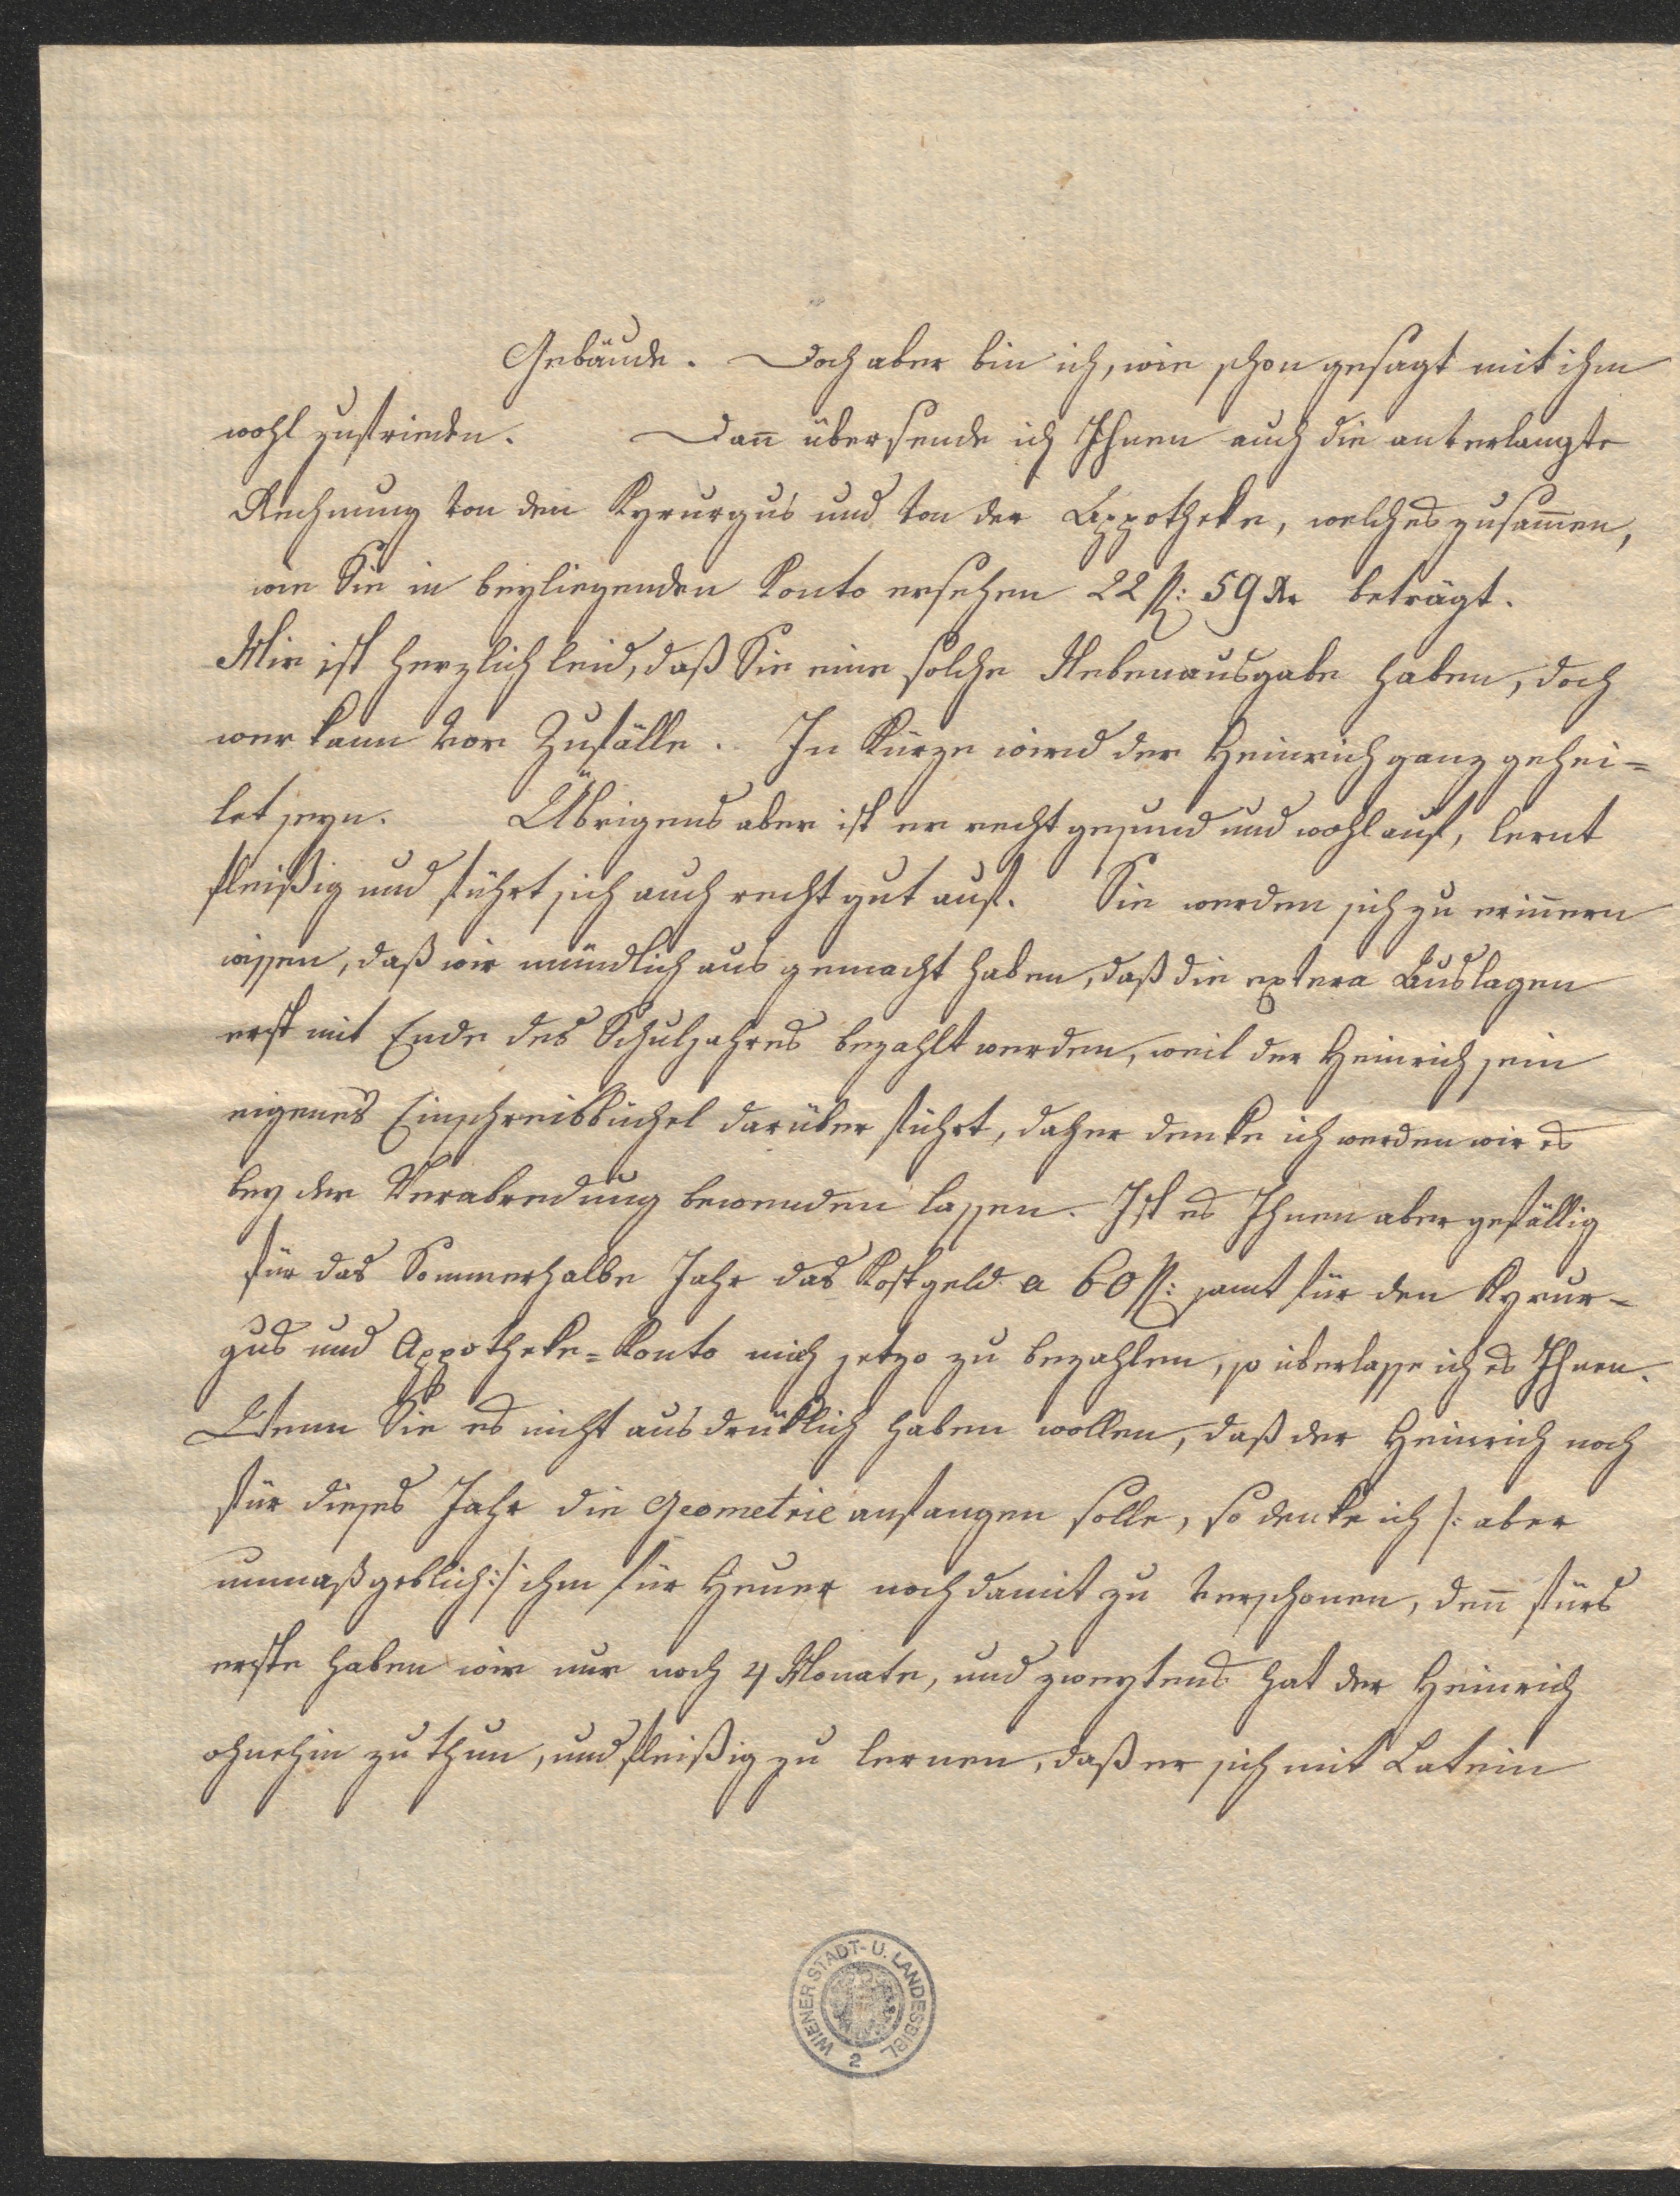 Gebäude. Doch aber bin ich, wie schon gesagt mit ihm
wohl zufrieden. Dan̄ übersende ich Ihnen auch die anverlangte
Rechnung von dem Kyrurgus und von der Appotheke, welches zusam̄en,
wie Sie in beyliegenden Konto ersehen 22 fl: 59 Xr beträgt.
Mir ist herzlich leid, daß Sie eine solche Nebenausgabe haben, doch
wer kann vor Zufälle. In Kürze wird der Heinrich ganz gehei=
let seyn. Übrigens aber ist er recht gesund und wohlauf, lernt
fleißig und führt sich auch recht gut auf. Sie werden sich zu erin̄ern
wissen, daß wir mündlich aus gemacht haben, daß die extera Auslagen
erst mit Ende des Schuljahres bezahlt werden, weil der Heinrich sein
eigenes Einschreibbüchel darüber führt, daher denke ich werden wir es
bey der Verabredung bewenden lassen. Ist es Ihnen aber gefällig
für das Sommerhalbe Jahr das Kostgeld a 60 fl: samt für den Kyrur=
gus und Appotheke=Konto mich jetzo zu bezahlen, so überlasse ich es Ihnen.
Wenn Sie es nicht ausdrüklich haben wollen, daß der Heinrich noch
für dieses Jahr die Geometrie anfangen solle, so denke ich /: aber
unmaßgeblich :/ ihm für Heuer noch damit zu verschonen, den̄ fürs
erste haben wir nur noch 4 Monate, und zweytens hat der Heinrich
ohnehin zu thun, und fleißig zu lernen, daß er sich mit Latein
WIENER STADT- U. LANDESBIBL.
2